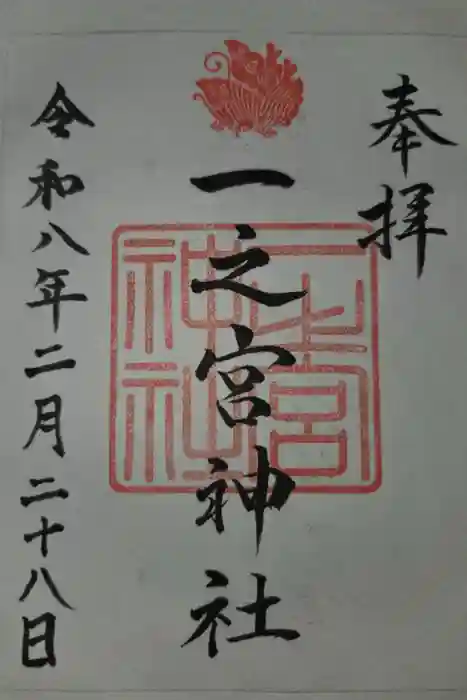 奉拝
一之宮神社
一之宮
神社
令和八年二月二十八日